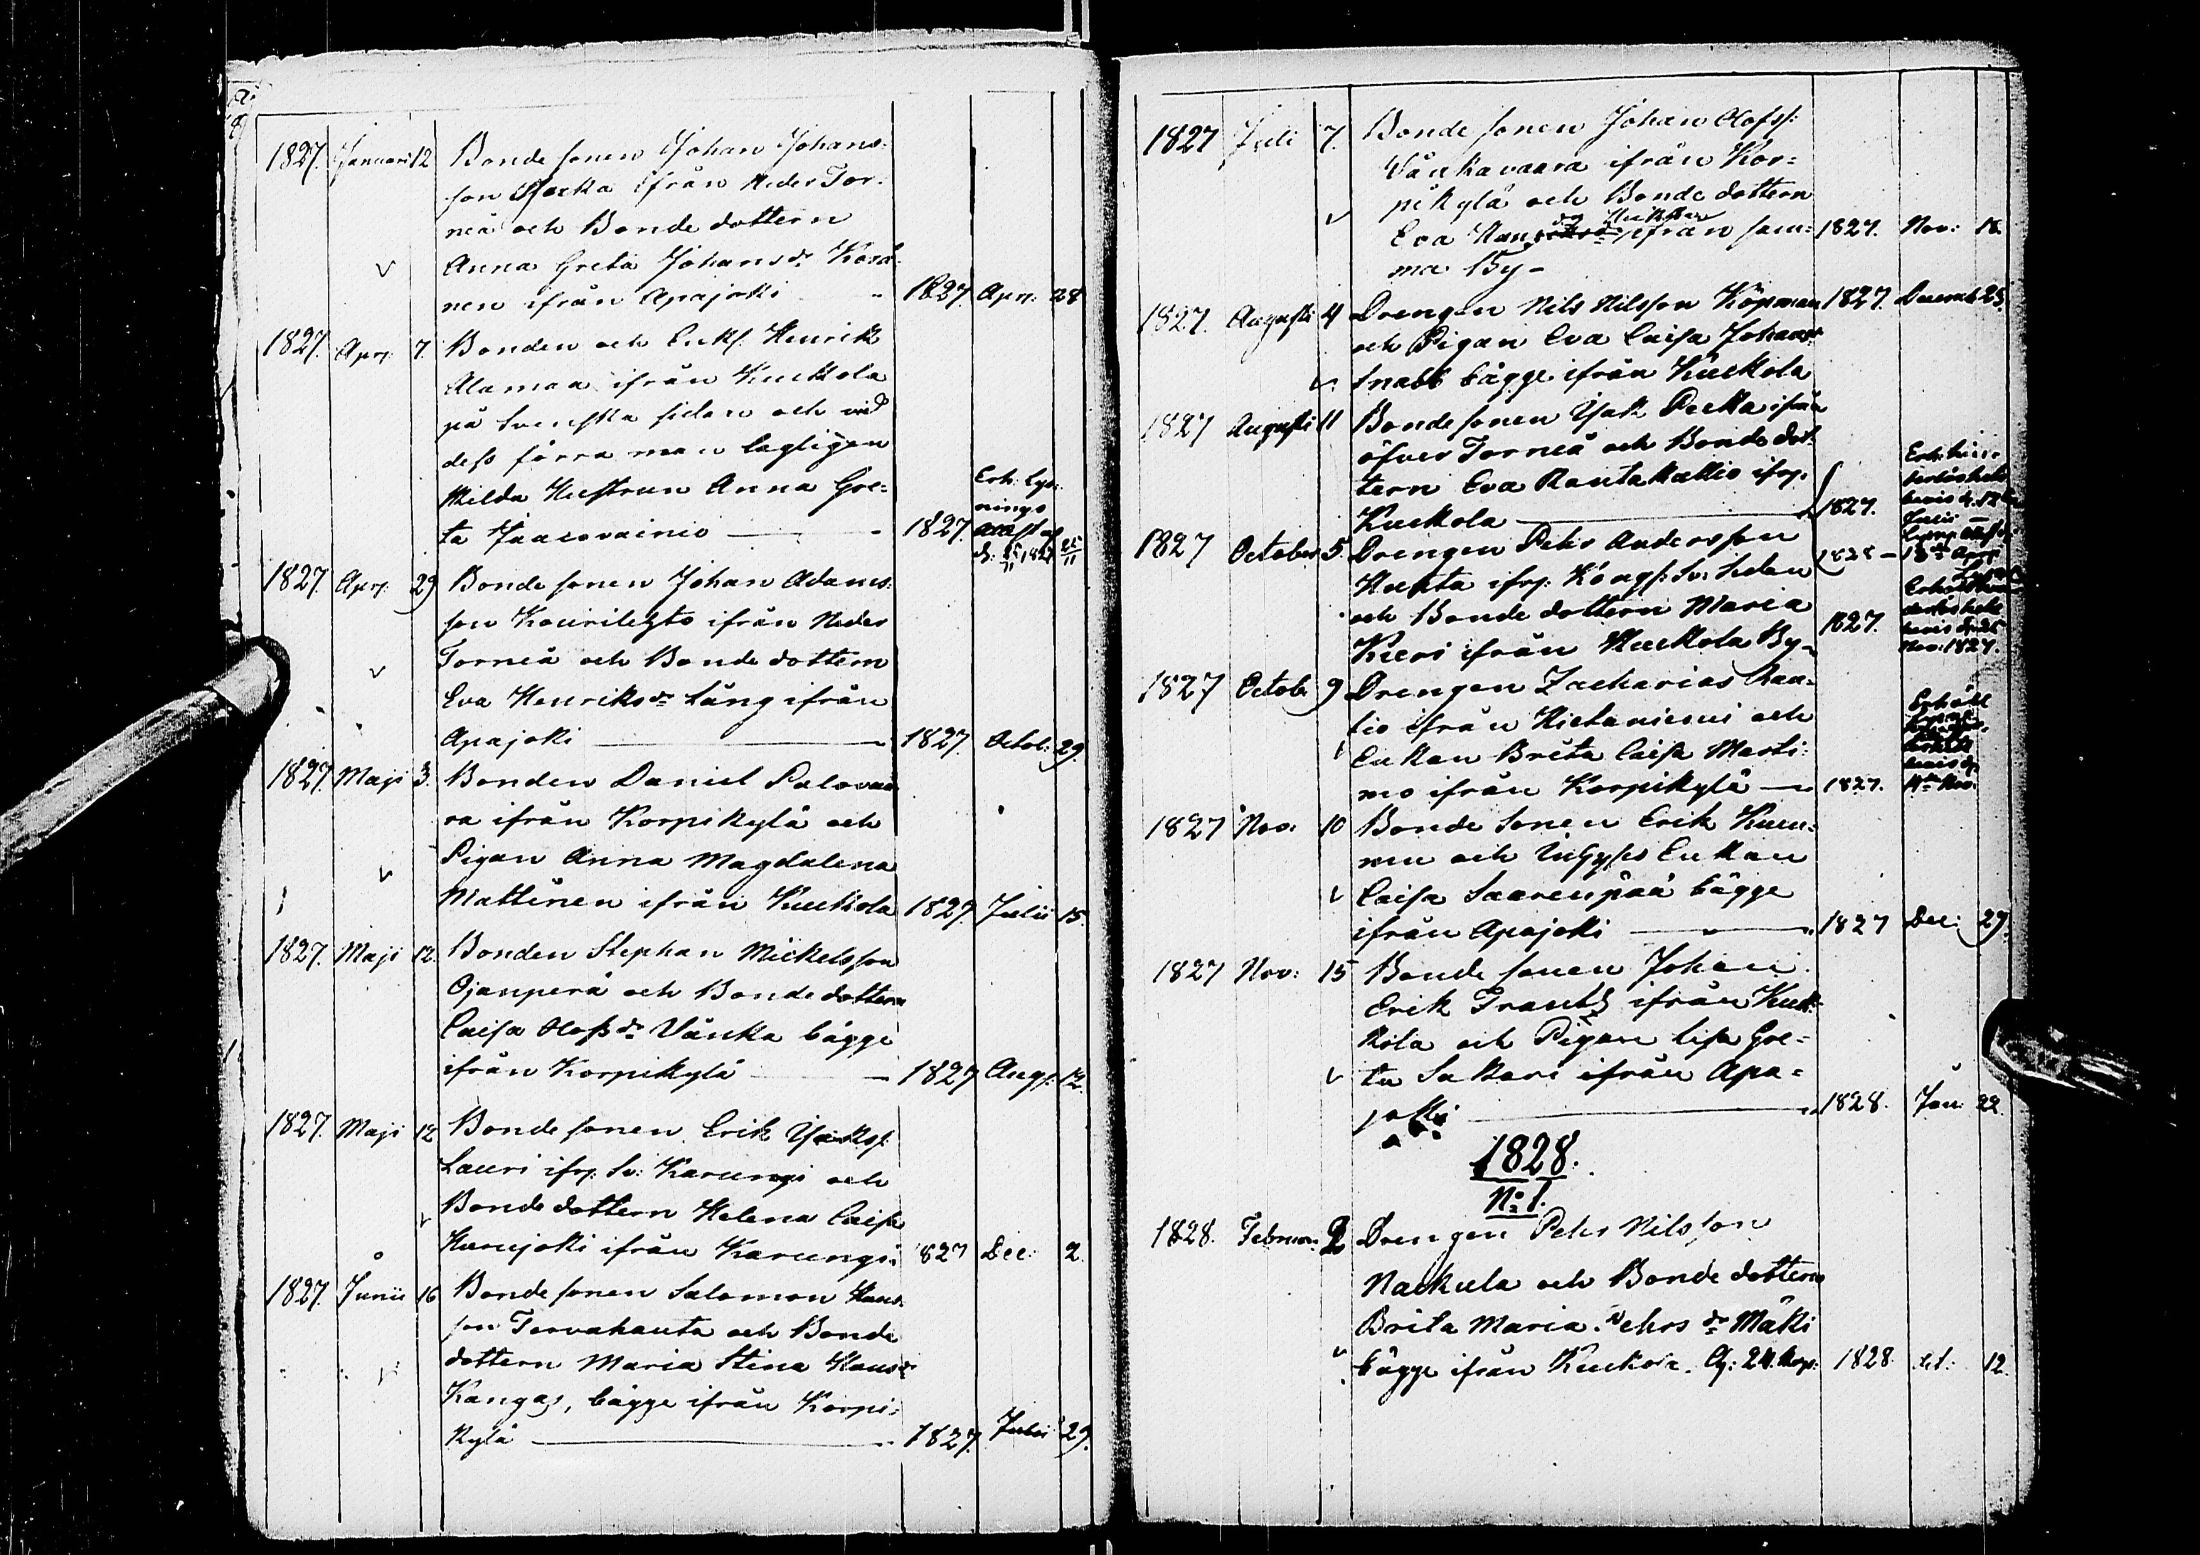 1827. Januari 12 Bonde sonen Johan Johans-
son ifrån Neder Tor-
neå och Bonde dottern
Anna Greta Johans dr
nen ifrån Apajoki 1827. Apr: 28
1827. Apr: 7. Bonden och Enkl. Henrik
Alamaa ifrån Kuckola
på Svenska sidan och vid
dess förra man lagligen
skilda Hustrun Anna Gre-
ta Jaacovainio 1827. Erh: Lys-
nings
attest af
d. 25/11 1827 25/11
1827. Apr: 29 Bonde sonen Johan Adams-
son Kourilehto ifrån Neder
Torneå och Bonde dottern
Eva Henriks dr Lång ifrån
Apajoki 1827. Octob: 29.
1827 Maji 3. Bonden Daniel Palovaa
ra ifrån Korpikylä och
Pigan Anna Magdalena
Mattinen ifrån Kuckola 1827. Julii 15.
1827. Maji 12. Bonden Stephan Mickelsson
Ojanperä och Bonde dottern
Caisa Olofs dr Vänka bägge
ifrån Korpikylä 1827 Aug: 12.
1827. Maji 12 Bonde sonen Erik Isaks:
Lauri ifr: Sv: Karungi och
Bonde dottern Helena Caisa
Karujoki ifrån Karungi: 1827 Dec: 2.
1827. Junii 16 Bonde sonen Salomon Hans-
son Tervahauta och Bonde
dottern Maria Stina Hans dr
Kangas, bägge ifrån Korpi-
kylä 1827. Julii 29.
1827 Juli 7. Bonde sonen Johan Olofss:
Vänkavaara ifrån Kor-
pikylä och Bonde dottern
Eva ifrån sam- 1827. Nov: 18.
ma By-
1827. Augusti 4 Drengen Nils Nilsson Köpman 1827. Decemb 25.
och Pigan Eva Caisa Johans dr
Snabb bägge ifrån Kuckola
1827 Augusti 11 Bonde sonen Isak Pecka ifrån
öfver Torneå och Bonde dot-
tern Eva Rantakallio ifr:
Kuckola 1827.
1828 -
Erh: hin-
derlöshets
bevis d. 12
Julii -
Lysn: attest
13 Apr:
1827 October 5. Drengen Pehr Andersson
Hukta ifr: Kongs: Sv: Sidan
och Bonde dottern Maria 1827.
Kieri ifrån Kuckola By-
Erhöll hin-
derlöshets
bevis d. 25
Nov: 1827.
1827 Octob: 9 Drengen Zacharias Rau-
tio ifrån Hietaniemi och
Enkan Brita Caisa Marti-
mo ifrån Korpikylä 1827.
Erhöll
bevis d.
14 Nov.
1827 Nov: 10 Bonde sonen Erik Kum-
mu och Enkan
Caisa Saarenpää bägge
ifrån Apajoki 1827 Dec: 29.
1827 Nov: 15 Bonde sonen Johan
Erik Frantz ifrån Kuck-
kola och Pigan Lisa Gre-
ta Sakari ifrån Apa-
jocki 1828. Jan: 22.
1828.
No: 1.
1828. Februari 2 Drengen Pehr Nilsson
Nackula och Bonde dottern
Brita Maria Pehrs dr Mäki
bägge ifrån Kuckola. 24. Kop: 1828. 12.